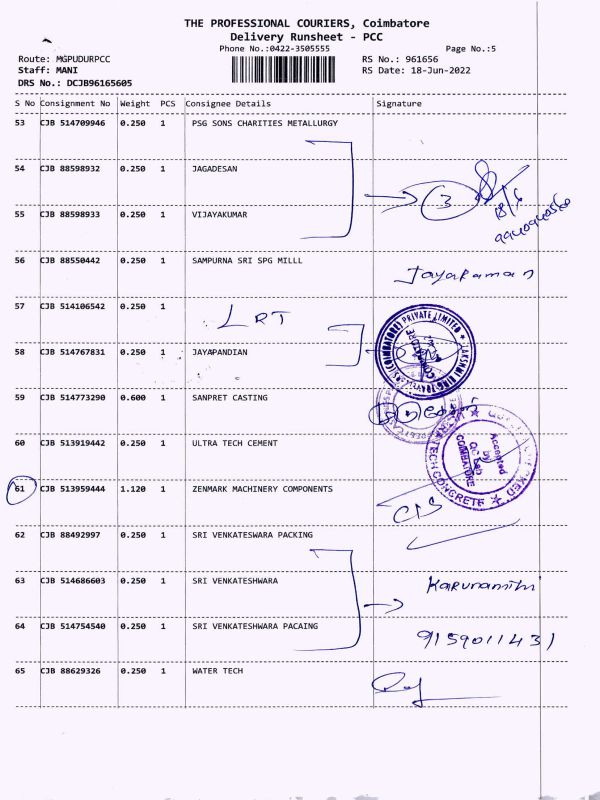 THE PROFESSIONAL COURIERS, Coimbatore
Delivery Runsheet - PCC
Phone No.:0422-3505555 Page No.:5
Route: MGPUDURPCC RS No.: 961656
Staff: MANI RS Date: 18-Jun-2022
DRS No.: DCJB96165605
S No Consignment No Weight PCS Consignee Details Signature
53 CJB 514709946 0.250 1 PSG SONS CHARITIES METALLURGY
54 CJB 88598932 0.250 1 JAGADESAN
3 18/6
55 CJB 88598933 0.250 1 VIJAYAKUMAR
56 CJB 88550442 0.250 1 SAMPURNA SRI SPG MILLL
Jayaraman
57 CJB 514106542 0.250 1
LRT
58 CJB 514767831 0.250 1 JAYAPANDIAN
(COIMBATORE) PRIVATE LIMITED
59 CJB 514773290 0.600 1 SANPRET CASTING
60 CJB 513919442 0.250 1 ULTRA TECH CEMENT
Accepted
by
QC Lab
COIMBATORE
CONCRETE
61 CJB 513959444 1.120 1 ZENMARK MACHINERY COMPONENTS
62 CJB 88492997 0.250 1 SRI VENKATESWARA PACKING
63 CJB 514686603 0.250 1 SRI VENKATESHWARA
64 CJB 514754540 0.250 1 SRI VENKATESHWARA PACAING
9159011431
65 CJB 88629326 0.250 1 WATER TECH